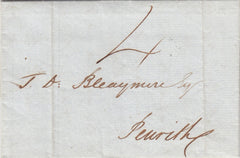 4
J. D. Bleaymire Esq
Penrith